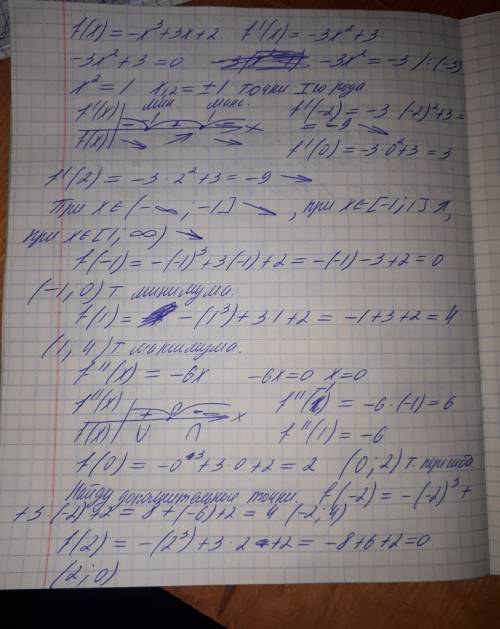 f(x) = -x³+3x+2   f'(x) = -3x²+3
-3x²+3=0   -3x² = -3 /:(-3)
x² = 1   x₁,₂ = ±1 точки I го рода
мин   макс.
f'(x) | - + - x   f'(-2) = -3·(-2)²+3 =
f(x) | ↘ ↗ ↘   = -9 ↘
f'(0) = -3·0²+3 = 3
f'(2) = -3·2²+3 = -9 ↘
При x∈(-∞; -1] ↘, при x∈[-1;1] ↗,
при x∈[1, ∞) ↘
f(-1) = -(-1)³+3(-1)+2 = -(-1)-3+2 = 0
(-1, 0) т. минимума.
f(1) = -(1³)+3·1+2 = -1+3+2 = 4
(1, 4) т. максимума.
f''(x) = -6x   -6x=0   x=0
f''(x) | + 0 - x   f''(-1) = -6·(-1) = 6
f(x) | ∪ ∩   f''(1) = -6
f(0) = -0³+3·0+2 = 2   (0; 2) т. перегиба
Найду дополнительные точки. f(-2) = -(-2)³+
+3·(-2)+2 = 8+(-6)+2 = 4 (-2; 4)
f(2) = -(2³)+3·2+2 = -8+6+2=0
(2; 0)